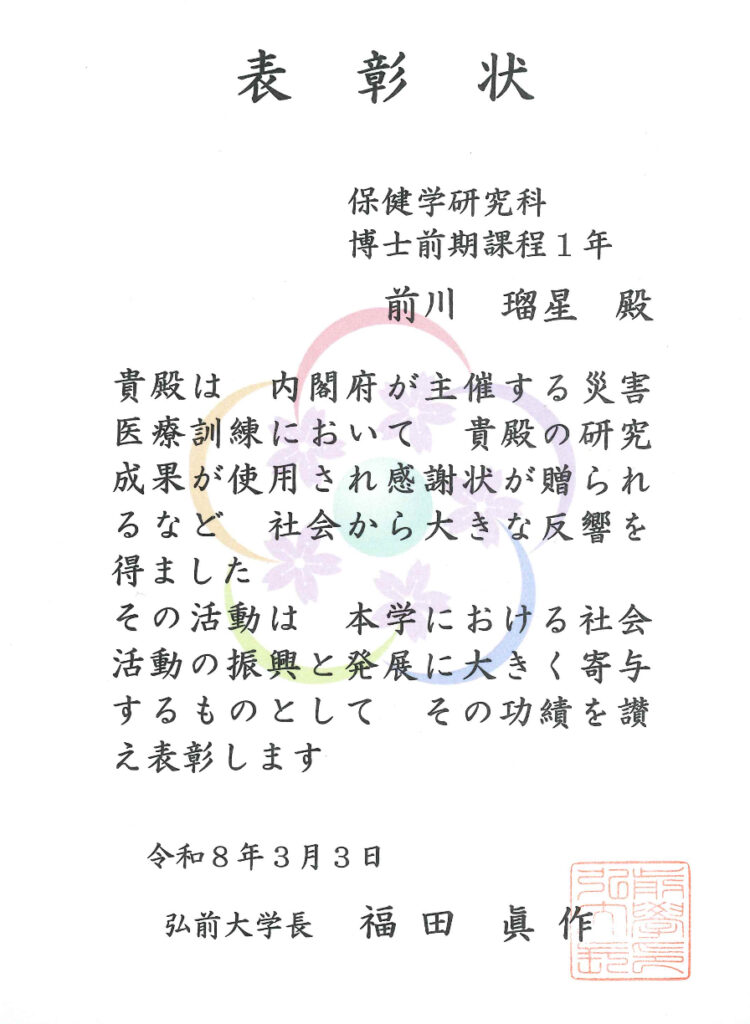 表彰状
保健学研究科
博士前期課程１年
前川　瑠星　殿
貴殿は　内閣府が主催する災害
医療訓練において　貴殿の研究
成果が使用され感謝状が贈られ
るなど　社会から大きな反響を
得ました
その活動は　本学における社会
活動の振興と発展に大きく寄与
するものとして　その功績を讃
え表彰します
令和８年３月３日
弘前大学長　福田　眞作